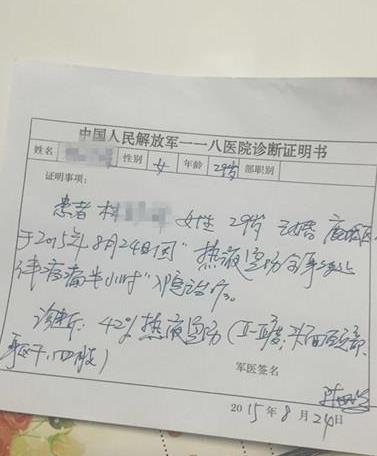 中国人民解放军一一八医院诊断证明书
姓名 性别 女 年龄 29岁 部职别
证明事项：
患者林 女性 29岁 已婚
于2015年8月24日因“热液烫伤全身多处
伴疼痛半小时”入院治疗。
诊断：42%热液烫伤（II-III度，头面颈部、
躯干、四肢）
军医签名
2015年8月24日